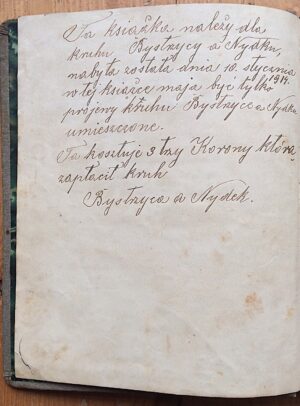 Ta książka należy dla
kruhu Bystrzycy a Nydku,
nabyta została dnia 18. stycznia
1914.
w tej książce maja być tylko
projewy kruhu Bystrzyce a Nydku
umieszczone.
Ta kosztuje 3 trzy Korony którą
zapłacit kruh
Bystrzyca a Nydek.